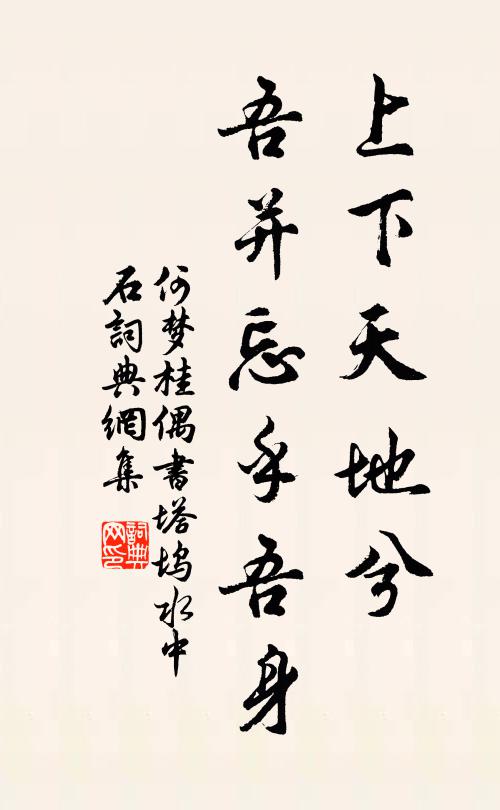 上下天地兮
吾并忘乎吾身
何梦桂偶書塔塢水中
石詞典網集
詞典
网印